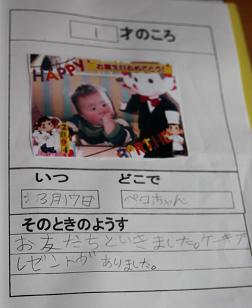 1 才のころ
HAPPY
お誕生日おめでとう!
2004
いつ どこで
3月17日 ペコちゃん
そのときのようす
お友だちといきました。ケーキプ
レゼントがありました。